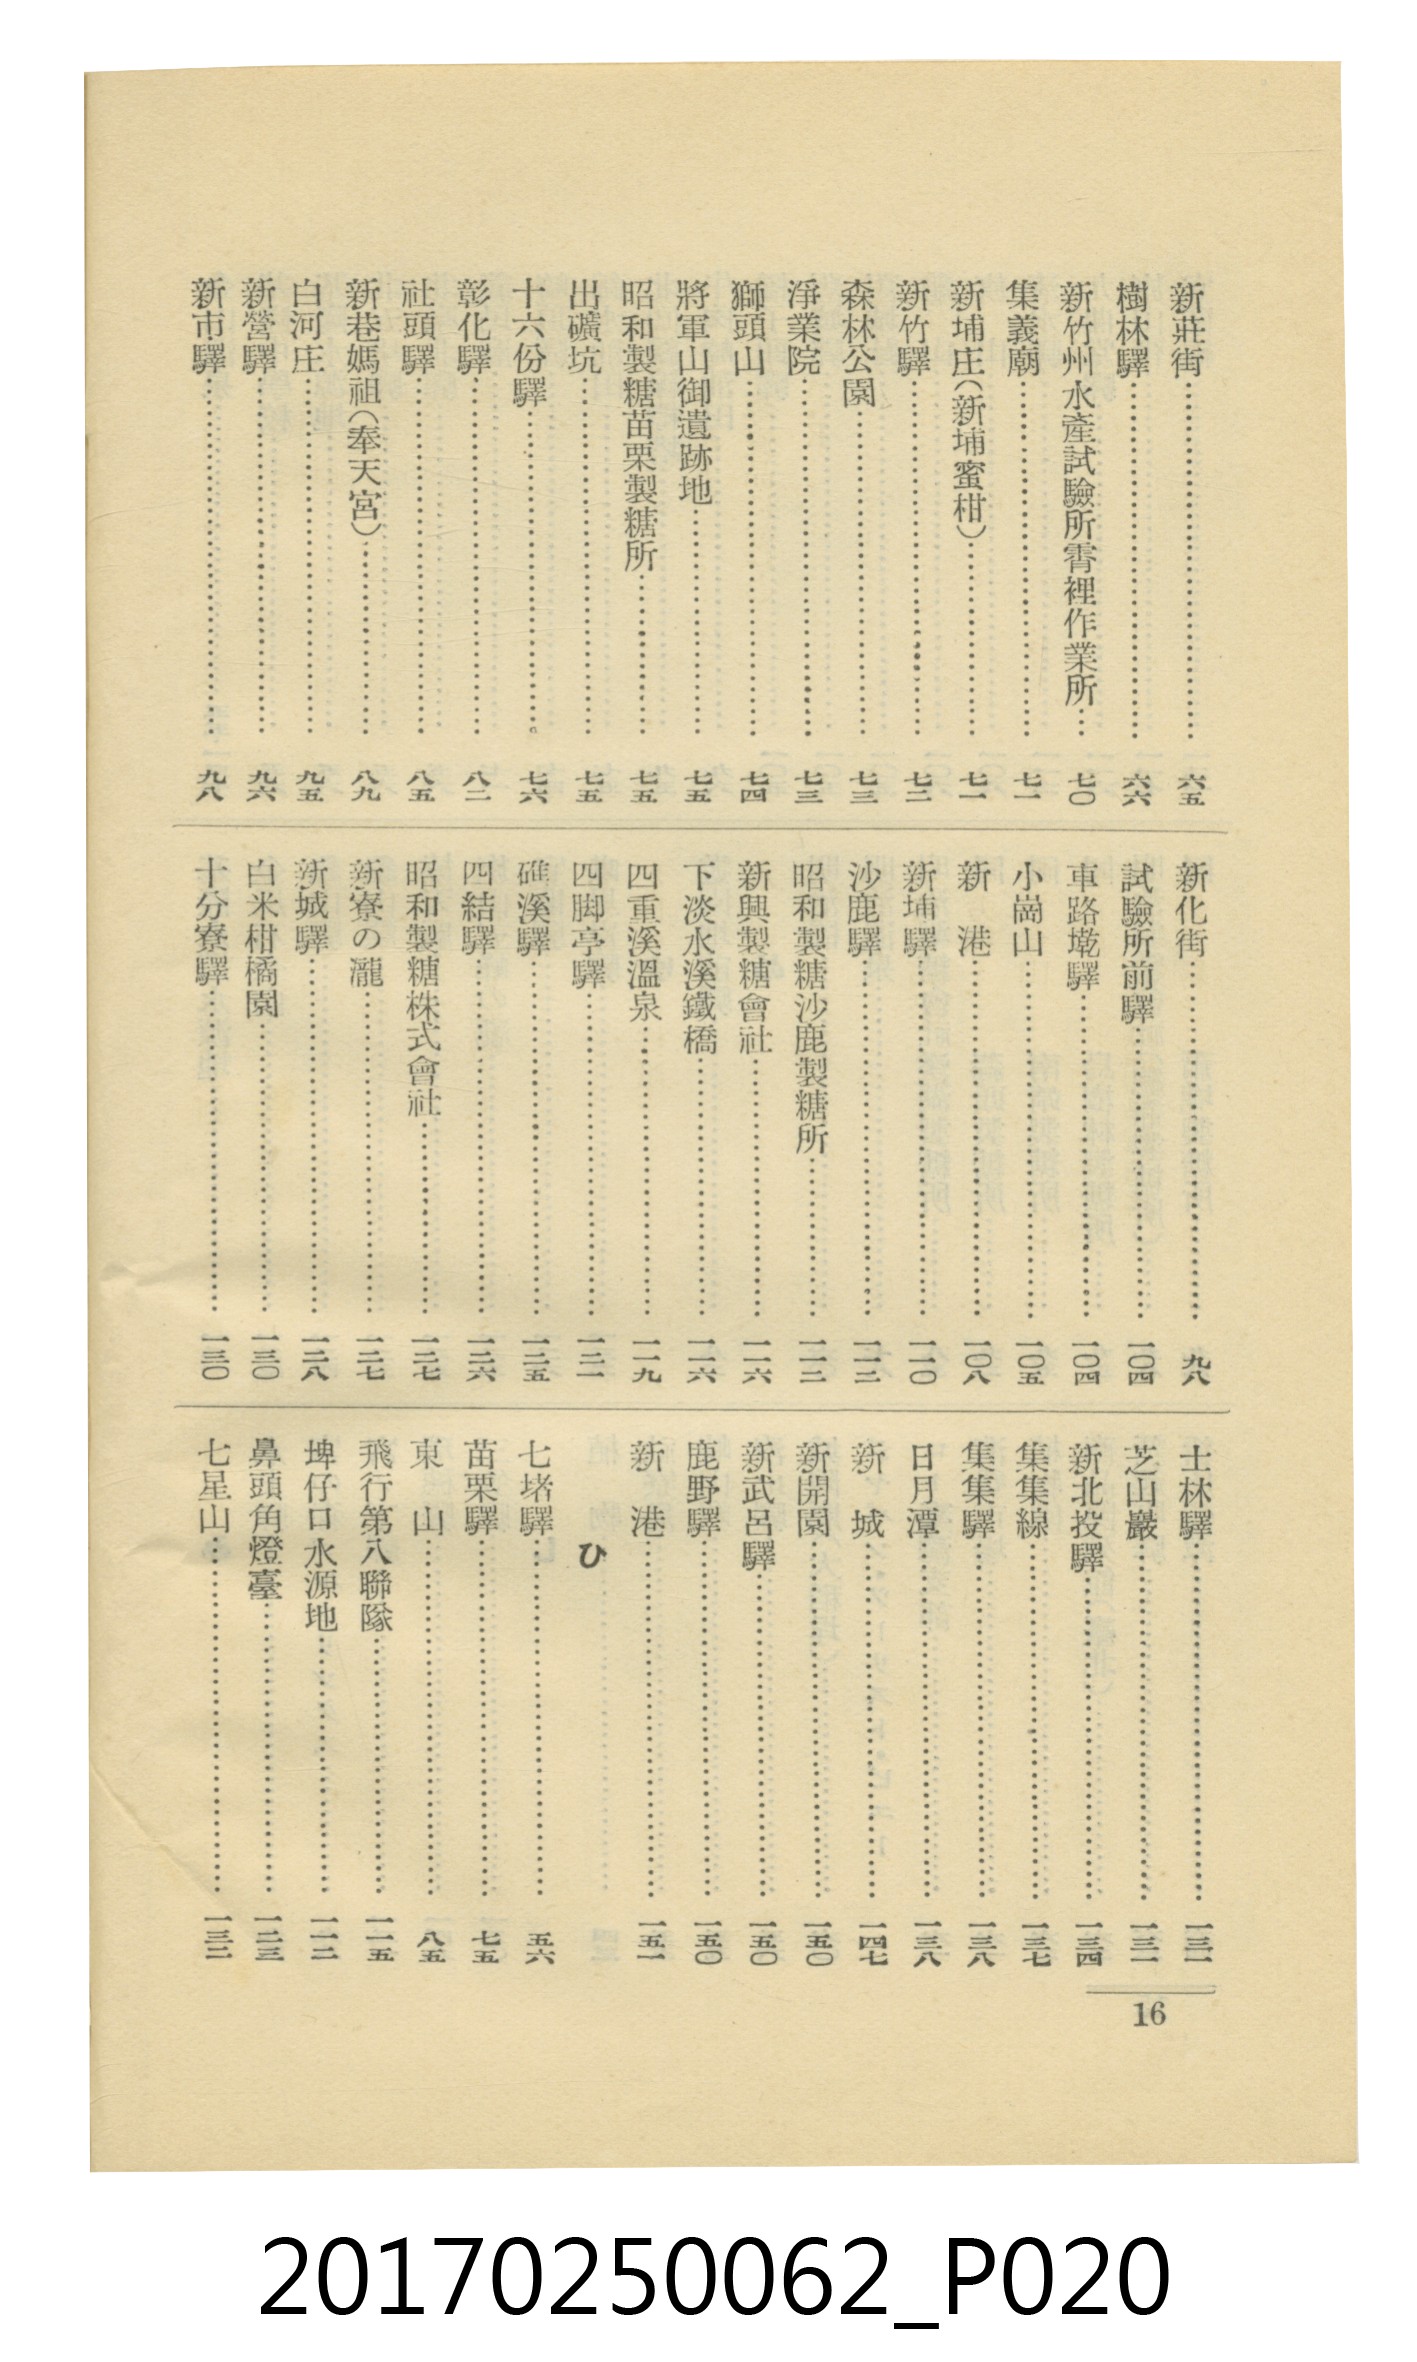 新莊街……六五
樹林驛……六六
新竹州水產試驗所霄裡作業所…七〇
集義廟……七一
新埔庄(新埔蜜柑)……七一
新竹驛……七二
森林公園……七三
淨業院……七三
獅頭山……七四
將軍山御遺跡地……七五
昭和製糖苗栗製糖所……七五
出礦坑……七五
十六份驛……七六
彰化驛……八二
社頭驛……八五
新巷媽祖(奉天宮)……八九
白河庄……九五
新營驛……九六
新市驛……九八
新化街……九八
試驗所前驛……一〇四
車路墘驛……一〇四
小崗山……一〇五
新港……一〇八
新埔驛……一一〇
沙鹿驛……一一二
昭和製糖沙鹿製糖所……一一二
新興製糖會社……一一六
下淡水溪鐵橋……一一六
四重溪溫泉……一一九
四脚亭驛……一二一
礁溪驛……一二五
四結驛……一二六
昭和製糖株式會社……一二七
新寮の瀧……一二七
新城驛……一二八
白米柑橘園……一三〇
十分寮驛……一三〇
士林驛……一三二
芝山巖……一三二
新北投驛……一三四
集集線……一三七
集集驛……一三八
日月潭……一三八
新城……一四七
新開園……一五〇
新武呂驛……一五〇
鹿野驛……一五〇
新港……一五一
ひ
七堵驛……五六
苗栗驛……七五
東山……八五
飛行第八聯隊……一一五
埤仔口水源地……一一二
鼻頭角燈臺……一二三
七星山……一三二
16
20170250062_P020